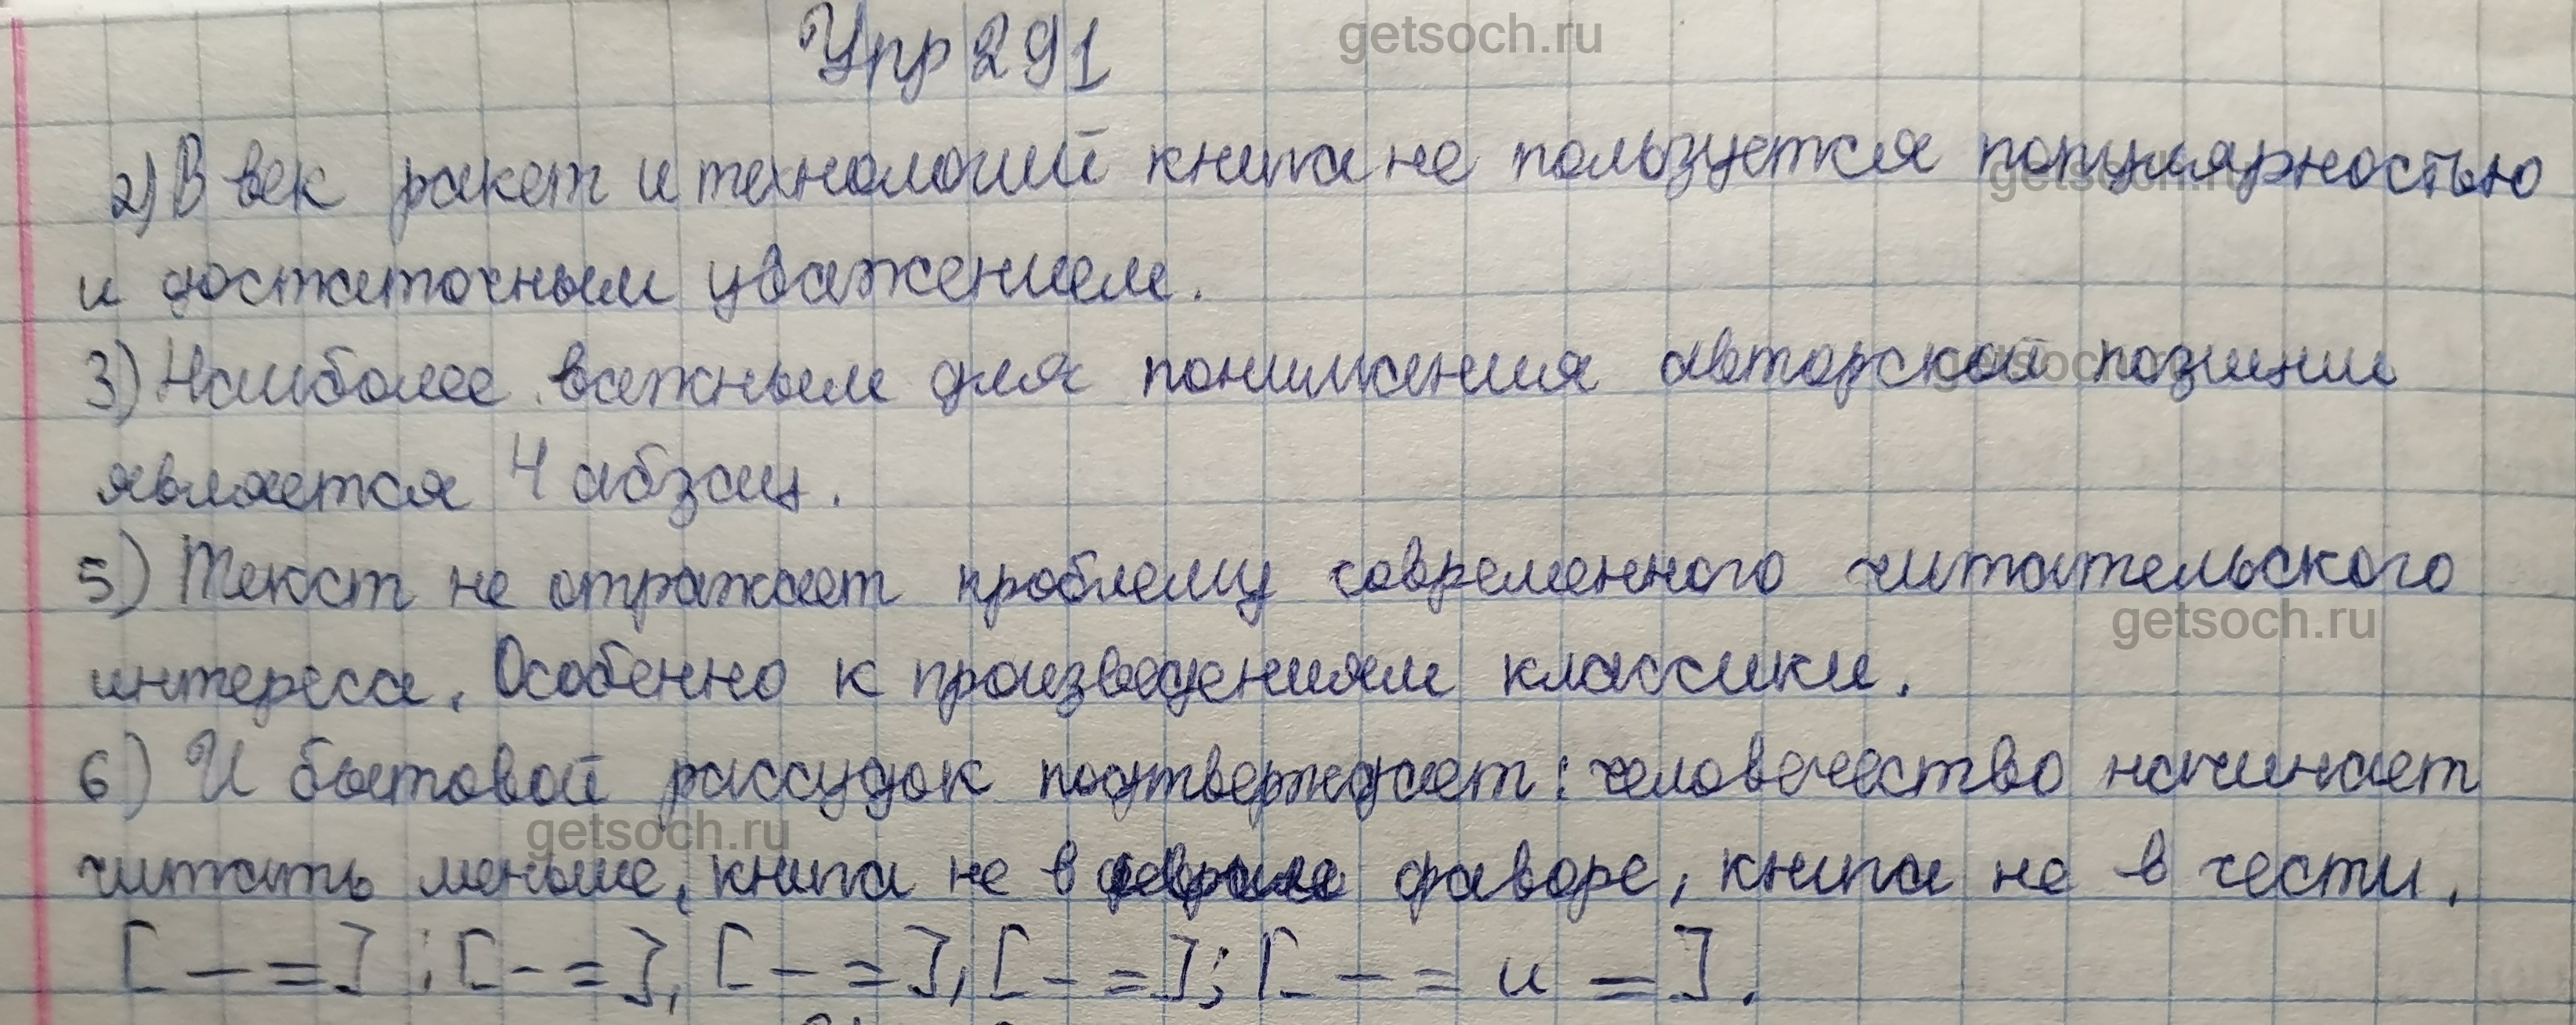 Упр 291
getsoch.ru
2) В век ракет и технологий книга не пользуется популярностью
getsoch.ru
и достаточным уважением.
3) Наиболее важным для понимания авторской позиции
getsoch.ru
является 4 абзац.
5) Текст не отражает проблему современного читательского
getsoch.ru
интереса. Особенно к произведениям классики.
6) И бытовой рассудок подтверждает: человечество начинает
getsoch.ru
читать меньше, книга не в фаворе, книга не в чести.
[— =]: [- =], [— =], [- =]; [— = и =].